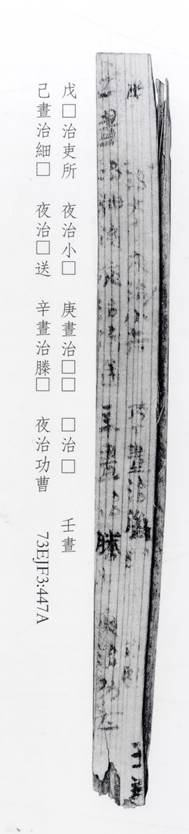 戊□治吏所　夜治小□　庚晝治□□　□治□　壬晝
己晝治細□　夜治□送　辛晝治縢□　夜治功曹
73EJF3:447A